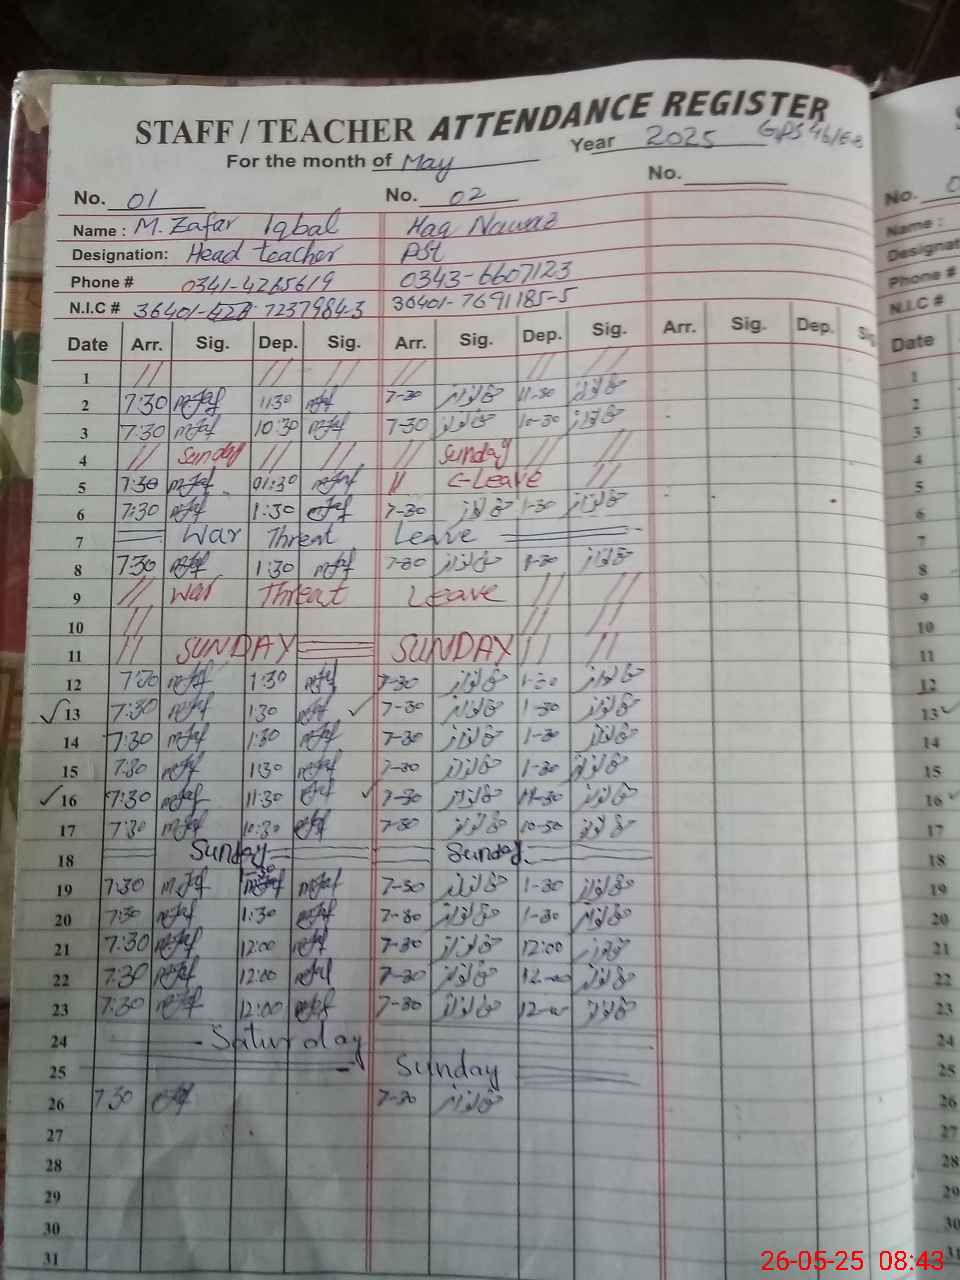 STAFF / TEACHER ATTENDANCE REGISTER
For the month of May Year 2025
No. 01 No. 02 No.
Name : M. Zafar Iqbal Haq Nawaz
Designation: Head teacher PST
Phone # 0341-4265619 0343-6607123
N.I.C # 36401- 7237984-3 36401-7691185-5
Date Arr. Sig. Dep. Sig. Arr. Sig. Dep. Sig. Arr. Sig. Dep. Sig.
1 // // // // // //
2 7:30 11:30 7-30 حق نواز 11-30 حق نواز
3 7:30 10:30 7-30 حق نواز 10-30 حق نواز
4 // Sunday // // // Sunday // //
5 7:30 01:30 // C-Leave //
6 7:30 1:30 7-30 حق نواز 1-30 حق نواز
7 War Threat Leave
8 7:30 1:30 7-30 حق نواز حق نواز
9 // War Threat Leave // //
10 // // //
11 // SUNDAY SUNDAY // //
12 7:30 1:30 7-30 حق نواز 1-30 حق نواز
13 7:30 1:30 7-30 حق نواز 1-30 حق نواز
14 7:30 1:30 7-30 حق نواز 1-30 حق نواز
15 7:30 1:30 7-30 حق نواز 1-30 حق نواز
16 7:30 11:30 7-30 حق نواز 11-30 حق نواز
17 7:30 10:30 7-30 حق نواز 10-30 حق نواز
18 Sunday Sunday
19 7:30 1-30 7-30 حق نواز 1-30 حق نواز
20 7:30 1:30 7-30 حق نواز 1-30 حق نواز
21 7:30 12:00 7-30 حق نواز 12:00 حق نواز
22 7:30 12:00 7-30 حق نواز 12-00 حق نواز
23 7:30 12:00 7-30 حق نواز 12-00 حق نواز
24 - Saturday
25 Sunday
26 7:30 7-30 حق نواز
27
28
29
30
31
No.
Name :
Phone #
N.I.C #
Date
1
2
3
4
5
6
7
8
9
10
11
12
13
14
15
16
17
18
19
20
21
22
23
24
25
26
27
28
29
30
31
26-05-25 08:43